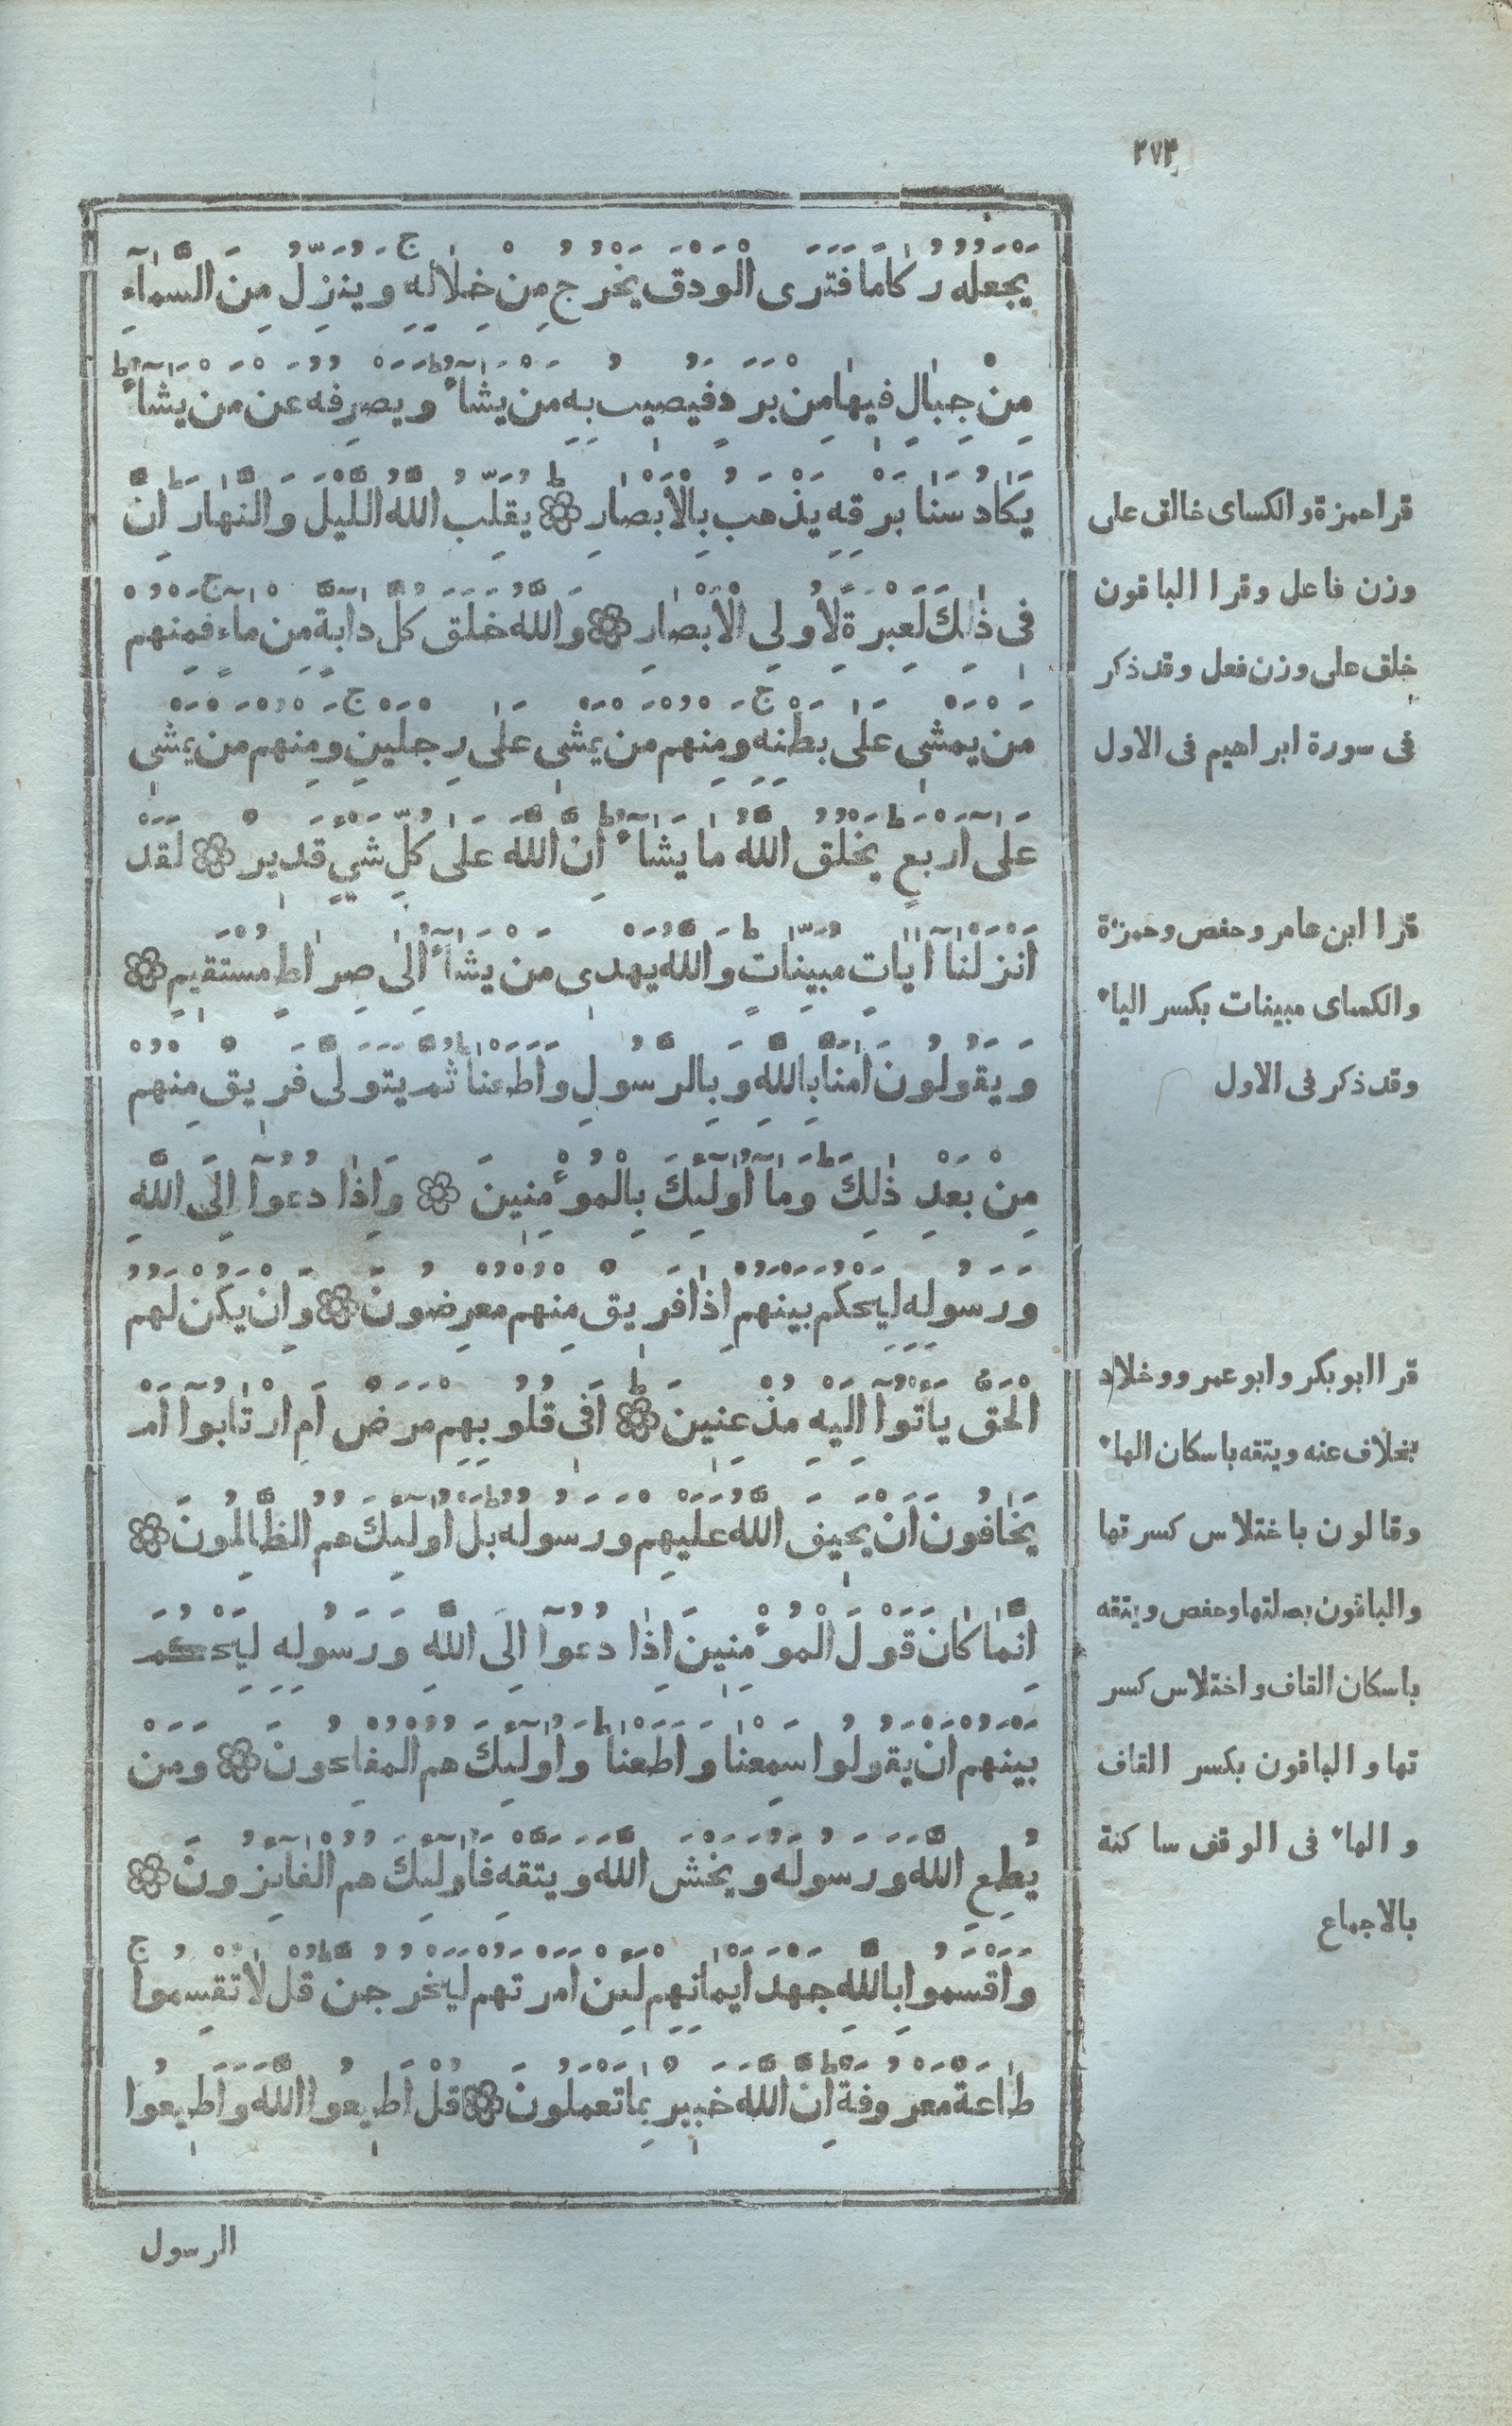 ٢٧٣
يَجْعَلُهُ رُكَامًا فَتَرَى الْوَدْقَ يَخْرُجُ مِنْ خِلَالِهِ ج وَيُنَزِّلُ مِنَ السَّمَآءِ
مِنْ جِبَالٍ فِيهَا مِنْ بَرَدٍ فَيُصِيبُ بِهِ مَنْ يَشَآءُ وَيَصْرِفُهُ عَنْ مَنْ يَشَآءُ ط
يَكَادُ سَنَا بَرْقِهِ يَذْهَبُ بِالْأَبْصَارِ ط ۞ يُقَلِّبُ اللَّهُ اللَّيْلَ وَالنَّهَارَ ط اِنَّ
فِى ذٰلِكَ لَعِبْرَةً لِأُولِى الْأَبْصَارِ ۞ وَاللَّهُ خَلَقَ كُلَّ دَآبَّةٍ مِنْ مَآءٍ ج فَمِنْهُمْ
مَنْ يَمْشِى عَلَى بَطْنِهِ ج وَمِنْهُمْ مَنْ يَمْشِى عَلَى رِجْلَيْنِ ج وَمِنْهُمْ مَنْ يَمْشِى
عَلَى اَرْبَعٍ ط يَخْلُقُ اللَّهُ مَا يَشَآءُ ط اِنَّ اللَّهَ عَلَى كُلِّ شَىْءٍ قَدِيرٌ ۞ لَقَدْ
اَنْزَلْنَا آيَاتٍ مُبَيِّنَاتٍ ط وَاللَّهُ يَهْدِى مَنْ يَشَآءُ اِلَى صِرَاطٍ مُسْتَقِيمٍ ۞
وَيَقُولُونَ اٰمَنَّا بِاللَّهِ وَبِالرَّسُولِ وَاَطَعْنَا ثُمَّ يَتَوَلَّى فَرِيقٌ مِنْهُمْ
مِنْ بَعْدِ ذٰلِكَ ط وَمَآ اُولٰٓئِكَ بِالْمُؤْمِنِينَ ۞ وَاِذَا دُعُوٓا اِلَى اللَّهِ
وَرَسُولِهِ لِيَحْكُمَ بَيْنَهُمْ اِذَا فَرِيقٌ مِنْهُمْ مُعْرِضُونَ ۞ وَاِنْ يَكُنْ لَهُمُ
الْحَقُّ يَأْتُوٓا اِلَيْهِ مُذْعِنِينَ ط ۞ اَفِى قُلُوبِهِمْ مَرَضٌ اَمِ ارْتَابُوٓا اَمْ
يَخَافُونَ اَنْ يَحِيفَ اللَّهُ عَلَيْهِمْ وَرَسُولُهُ ط بَلْ اُولٰٓئِكَ هُمُ الظَّالِمُونَ ۞
اِنَّمَا كَانَ قَوْلَ الْمُؤْمِنِينَ اِذَا دُعُوٓا اِلَى اللَّهِ وَرَسُولِهِ لِيَحْكُمَ
بَيْنَهُمْ اَنْ يَقُولُوا سَمِعْنَا وَاَطَعْنَا ط وَاُولٰٓئِكَ هُمُ الْمُفْلِحُونَ ۞ وَمَنْ
يُطِعِ اللَّهَ وَرَسُولَهُ وَيَخْشَ اللَّهَ وَيَتَّقْهِ فَاُولٰٓئِكَ هُمُ الْفَآئِزُونَ ۞
وَاَقْسَمُوا بِاللَّهِ جَهْدَ اَيْمَانِهِمْ لَئِنْ اَمَرْتَهُمْ لَيَخْرُجُنَّ ط قُلْ لَا تُقْسِمُوا ج
طَاعَةٌ مَعْرُوفَةٌ ط اِنَّ اللَّهَ خَبِيرٌ بِمَا تَعْمَلُونَ ۞ قُلْ اَطِيعُوا اللَّهَ وَاَطِيعُوا
الرسول
قرا حمزة والكساى خالق على
وزن فاعل وقرا الباقون
خلق على وزن فعل وقد ذكر
فى سورة ابراهيم فى الاول
قرا ابن عامر وحفص وحمزة
والكساى مبينات بكسر الياء
وقد ذكر فى الاول
قرا ابو بكر وابو عمرو وخلاد
بخلاف عنه ويتقه باسكان الهاء
وقالون باختلاس كسرتها
والباقون بصلتها وحفص ويتقه
باسكان القاف واختلاس كسر
تها والباقون بكسر القاف
والهاء فى الوقف ساكنة
بالاجماع